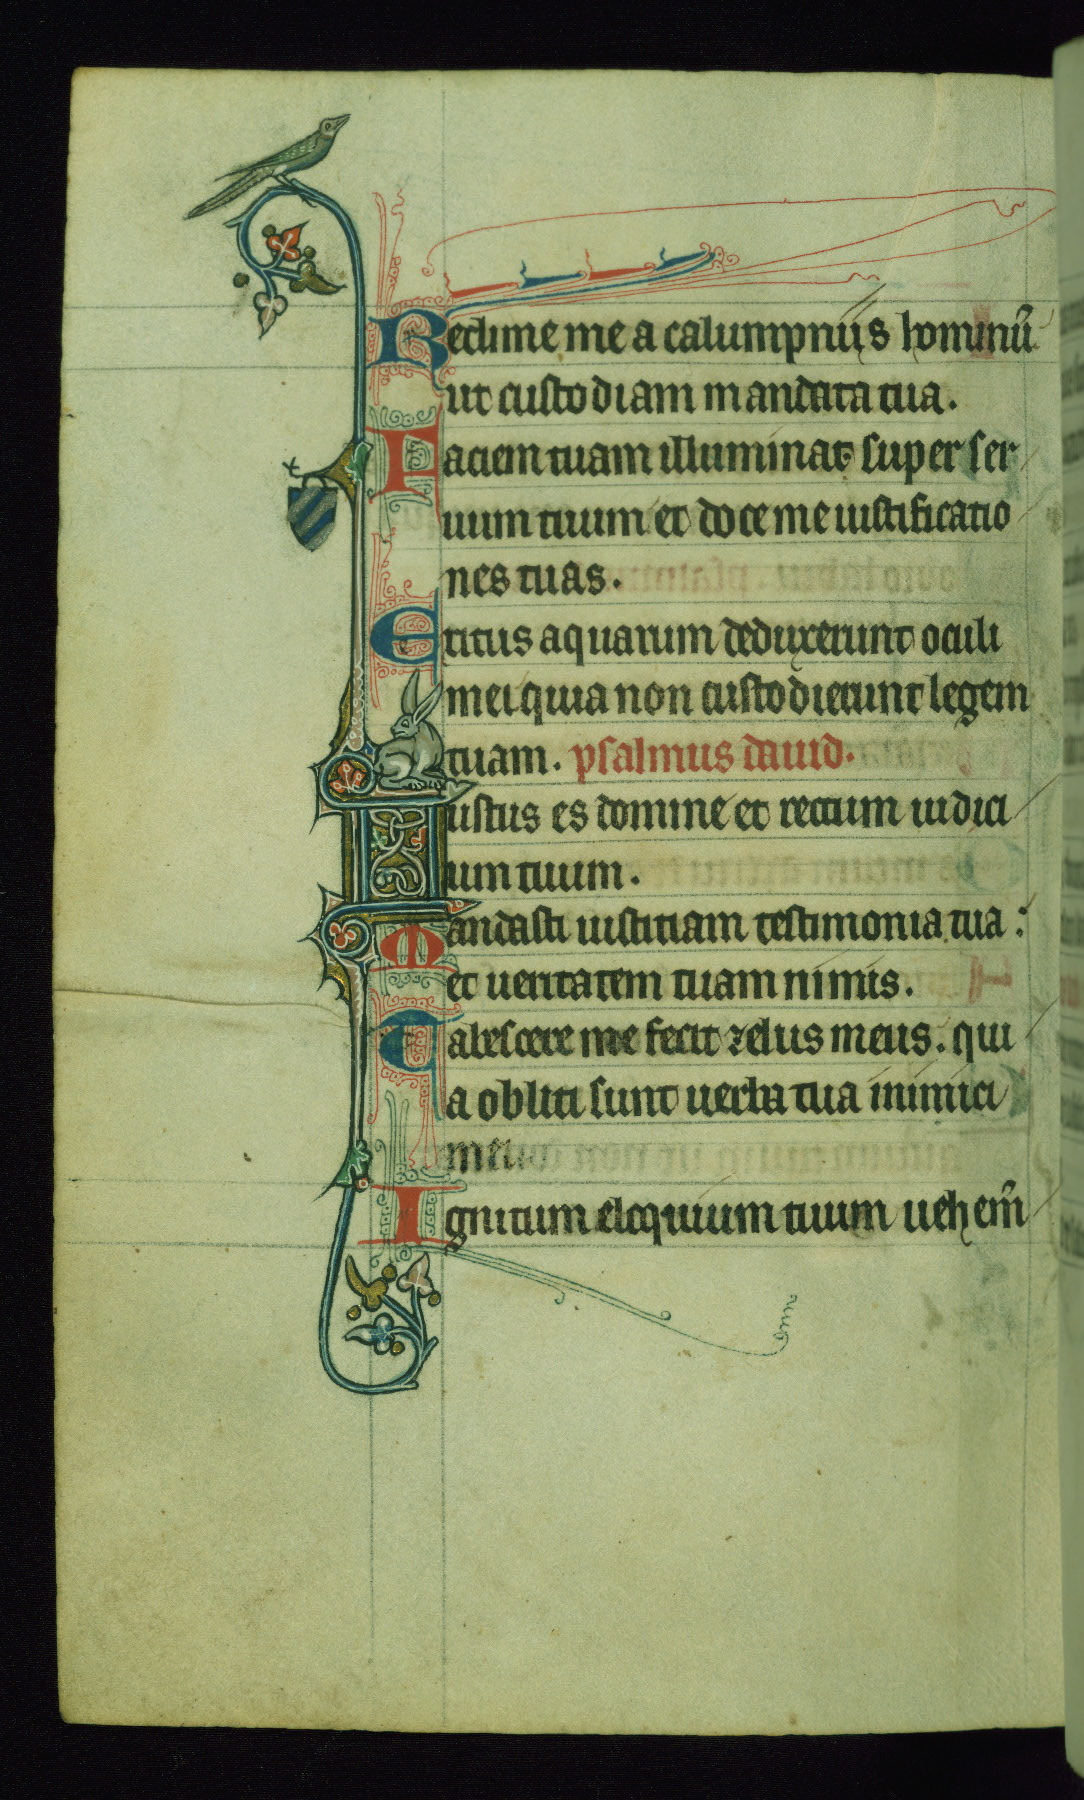 Redime me a calumpniis hominū
ut custodiam mandata tua.
Faciem tuam illuminat super ser
uum tuum et doce me iustificatio
nes tuas.
Eritus aquarum deduxerunt oculi
mei quia non custodierunt legem
tuam. psalmus dauid.
Iustus es domine et rectum iudici
um tuum.
Mandasti iustitiam testimonia tua:
et ueritatem tuam nimis.
Tabescere me fecit zelus meus. qui
a obliti sunt uerba tua inimici
mei
Ignitum eloquium tuum uehem̄